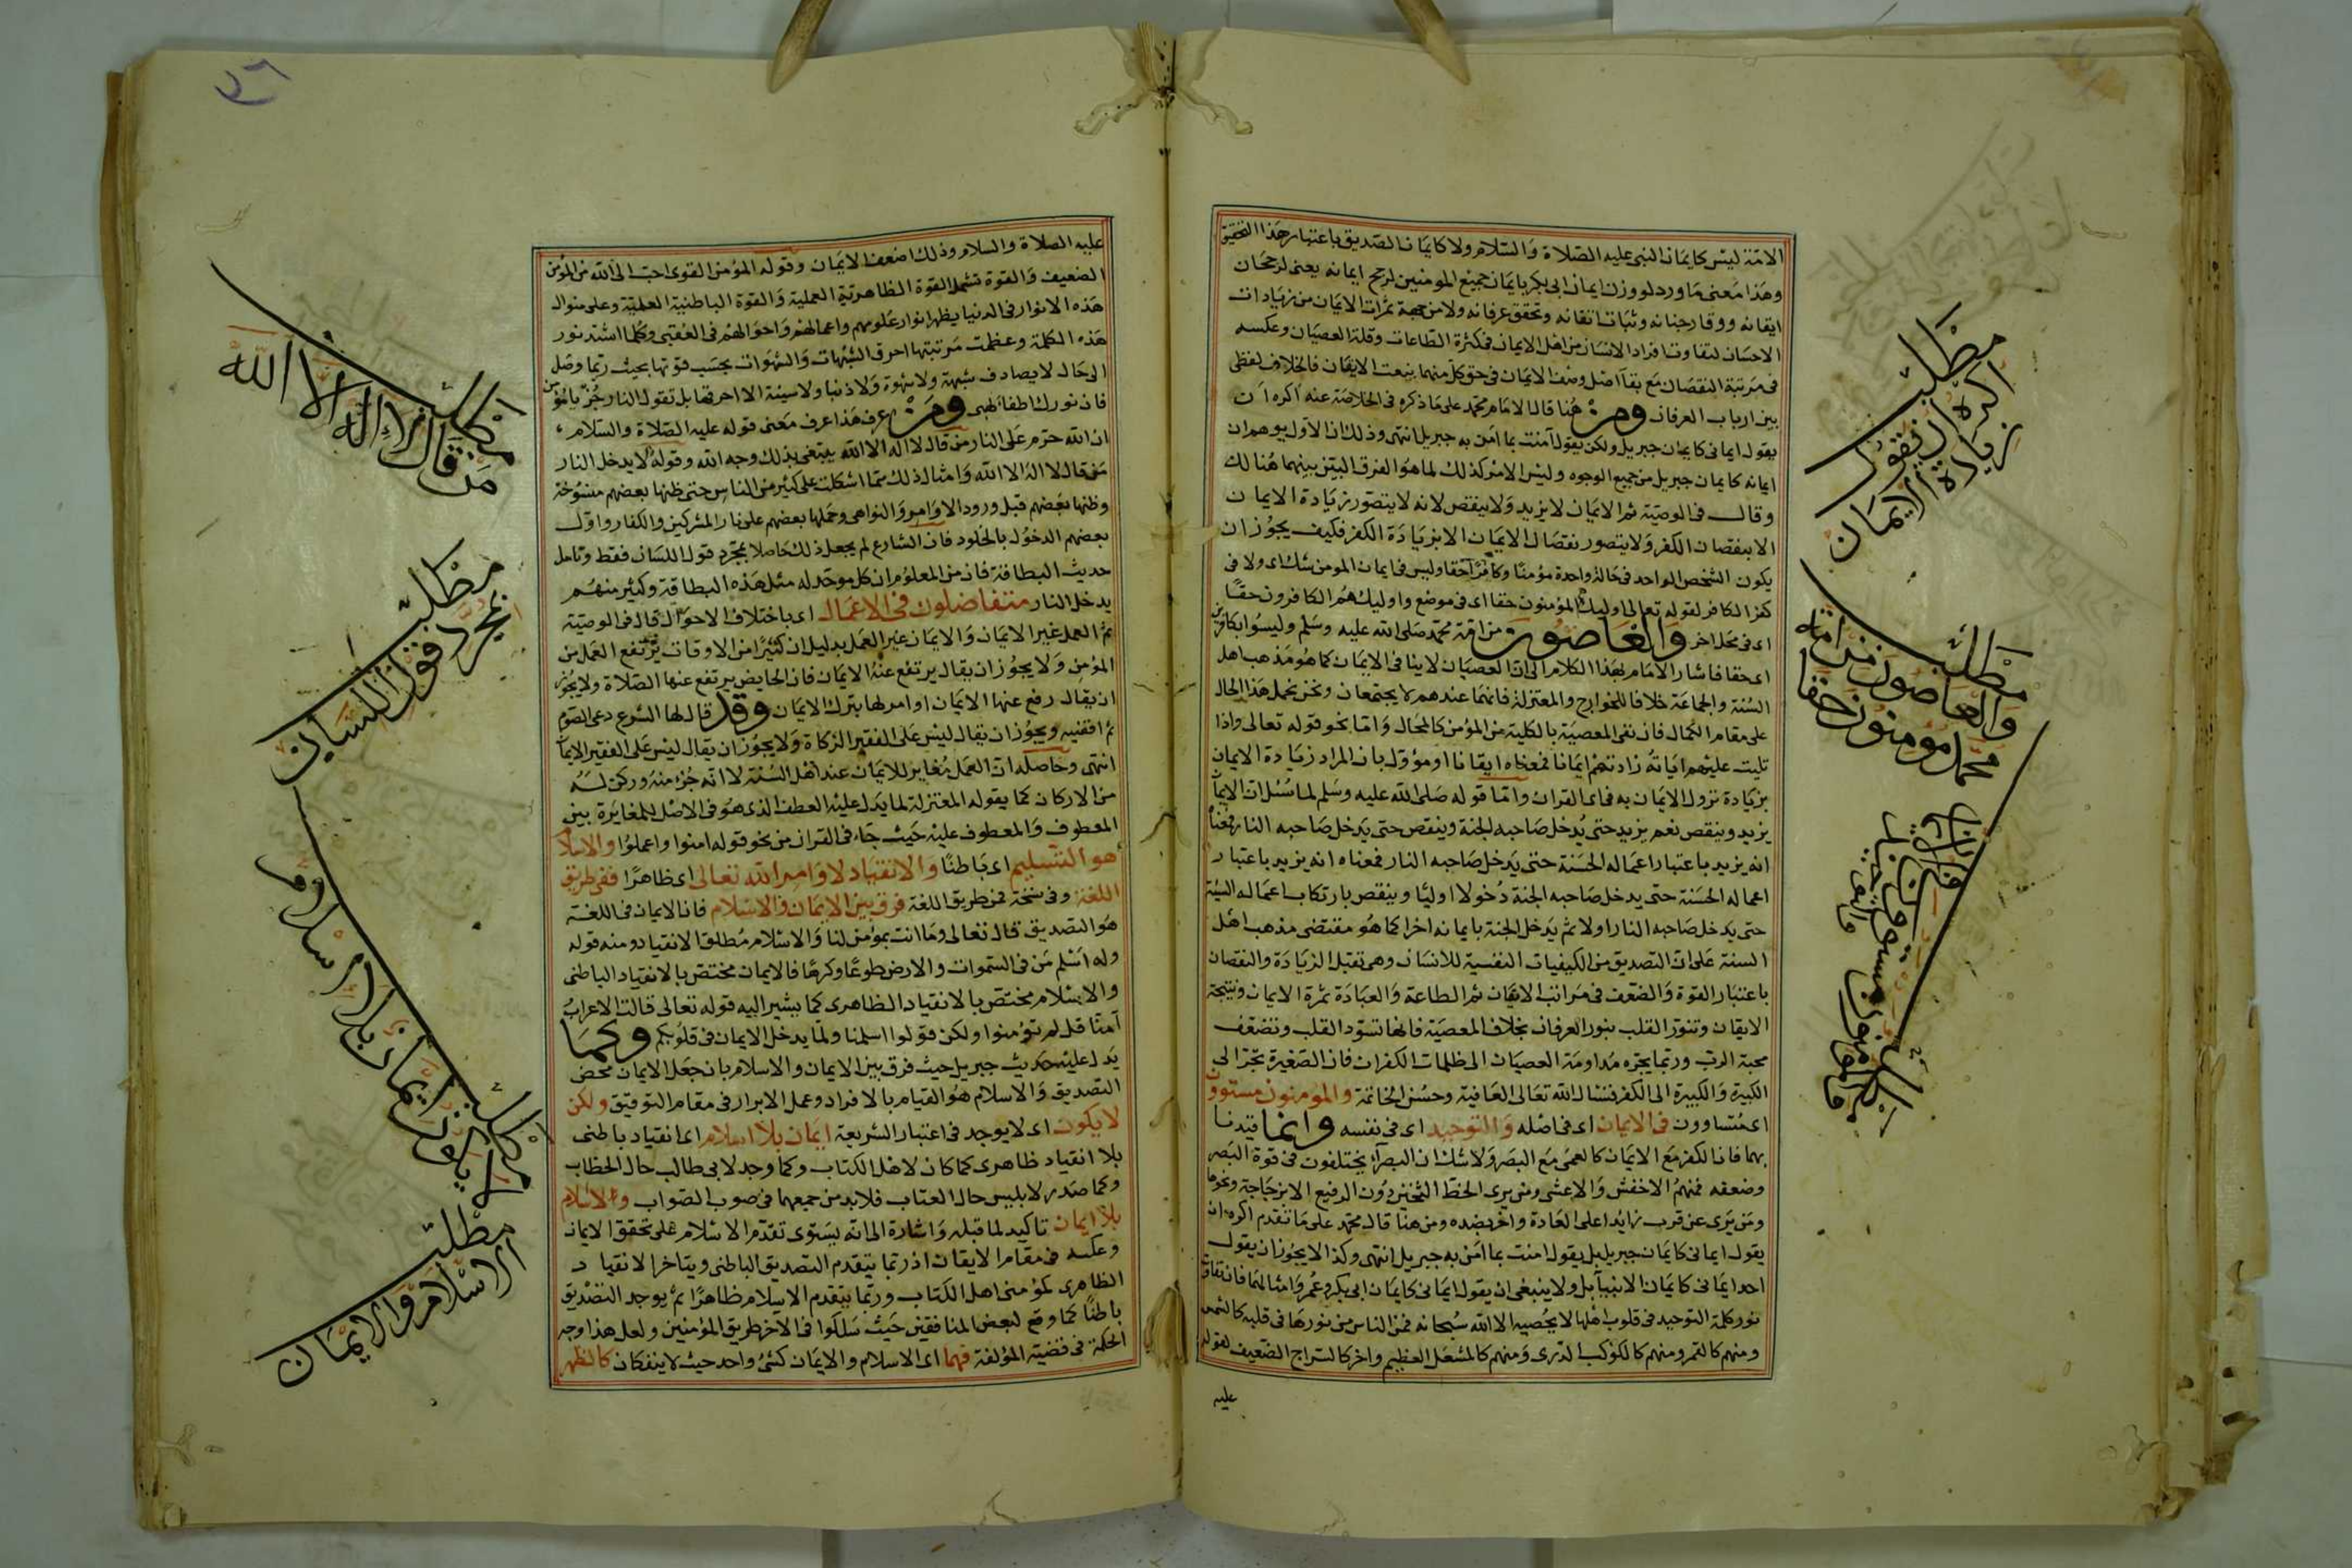 الامّة ليس كايمان النبي عليه الصلاة والسلام ولا كايمان الصديق باعتبار هذا التحقيق
وهذا معنى ما ورد لو وزن ايمان ابى بكر بايمان جميع المومنين لرجح ايمانه يعنى لرجحان
ايقانه ووقار جنانه وثبات اتقانه وتحقق عرفانه ولا من جهة ثمرات الايمان من زيادات
الاحسان لتفاوت افراد الانسان من اهل الايمان فى كثرة الطاعات وقلة العصيان وعكسه
فى مرتبة النقصان مع بقا اصل وصف الايمان فى حق كل منهما بنعت الايقان فالخلاف لفظى
بين ارباب العرفان ومن هنا قال الامام محمد على ما ذكره فى الخلاصة عنه اكره ان
يقول ايمانى كايمان جبريل ولكن يقول آمنت بما امن به جبريل انتهى وذلك ان الاول يوهم ان
ايمانه كايمان جبريل من جميع الوجوه وليس الامر كذلك لما هو الفرق البين بينهما هنالك
وقال فى الوصية ثم الايمان لا يزيد ولا ينقص لانه لا يتصور زيادة الايمان
الا بنقصان الكفر ولا يتصور نقصان الايمان الا بزيادة الكفر فكيف يجوز ان
يكون الشخص الواحد فى حالة واحدة مؤمنا وكافرا حقا وليس فى ايمان المومن شك اى ولا فى
كفر الكافر لقوله تعالى اوليك هم المؤمنون حقا اى فى موضع واوليك هم الكافرون حقا
اى فى محل اخر والعاصون من امة محمد صلى الله عليه وسلم وليسوا بكافرين
اى حقا فاشار الامام بهذا الكلام الى ان العصيان لا ينا فى الايمان كما هو مذهب اهل
السنة والجماعة خلافا للخوارج والمعتزلة فانهما عندهم لا يجتمعان ونحن نحمل هذا الحال
على مقام الكمال فان نفى المعصية بالكلية من المؤمن كالمحال واما نحو قوله تعالى واذا
تليت عليهم اياته زادتهم ايمانا فمعناه ايقانا او مؤول بان المراد زيادة الايمان
بزيادة نزول الايمان به فى اى القران واما قوله صلى الله عليه وسلم لما سئل ان الايمان
يزيد وينقص نعم يزيد حتى يدخل صاحبه الجنة وينقص حتى يدخل صاحبه النار فمعناه
انه يزيد باعتبار اعماله الحسنة حتى يدخل صاحبه النار فمعناه انه يزيد باعتبار
اعماله الحسنة حتى يدخل صاحبه الجنة دخولا اوليا وينقص بارتكاب اعماله السيئة
حتى يدخل صاحبه النار اولا ثم يدخل الجنة بايمانه اخرا كما هو مقتضى مذهب اهل
السنة على ان التصديق من الكيفيات النفسية للانسان وهى تقبل الزيادة والنقصان
باعتبار القوة والضعف فى مراتب الايقان ثم الطاعة والعبادة ثمرة الايمان ونتيجة
الايقان وتنور القلب بنور العرفان بخلاف المعصية فانها تسود القلب وتضعف
محبة الرب وربما يجره مداومة العصيان الى ظلمات الكفران فان الصغيرة تجر الى
الكبيرة والكبيرة الى الكفر فنسال الله تعالى العافية وحسن الخاتمة والمومنون مستوون
اى متساوون فى الايمان اى فى اصله والتوحيد اى فى نفسه وانما قيدنا
بهما فان الكفر مع الايمان كالعمى مع البصر ولا شك ان البصراء يختلفون فى قوة البصر
وضعفه فمنهم الاخفش والاعشى ومن يرى الخط الثخين دون الرفيع الا بزجاجة ونحوها
ومن يرى عن قرب زايدا على العادة واخر بضده ومن هنا قال محمد على ما تقدم اكره ان
يقول ايمانى كايمان جبريل بل يقول امنت بما امن به جبريل انتهى وكذا لا يجوز ان يقول
احد ايمانى كايمان الانبيآ بل ولا ينبغى ان يقول ايمانى كايمان ابى بكر وعمر وامثالهما فان تفاوت
نور كلمة التوحيد فى قلوب اهلها لا يحصيه الا الله سبحانه فمن الناس من نورها فى قلبه كالشمس
ومنهم كالقمر ومنهم كالكوكب الدرى ومنهم كالمشعل العظيم واخر كالسراج الضعيف لقوله
عليه
مطلب
اكره ان يقول
زيادة الايمان
مطلب
والعاصون من امة
محمد مومنون حقا
مطلب
والمومنون مستوون
عليه الصلاة والسلام وذلك اضعف الايمان وقوله المؤمن القوى احب الى الله من المؤمن
الضعيف والقوة تشمل القوة الظاهرية العملية والقوة الباطنية العلمية وعلى منوال
هذه الانوار فى الدنيا يظهر انوار علومهم واعمالهم واحوالهم فى العقبى وكلما اشتد نور
هذه الكلمة وعظمت مرتبتها احرق الشبهات والشهوات بحسب قوتها بحيث ربما وصل
الى حال لا يصادف شبهة ولا شهوة ولا ذنبا ولا سيئة الا احرقها بل تقول النار جز يا مؤمن
فان نورك اطفا لهبى ومن عرف هذا عرف معنى قوله عليه الصلاة والسلام
ان الله حرم على النار من قال لا اله الا الله يبتغى بذلك وجه الله وقوله لا يدخل النار
من قال لا اله الا الله وامثال ذلك مما اشكلت على كثير من الناس حتى ظنها بعضهم منسوخة
وظنها بعضهم قبل ورود الاوامر والنواهى وحملها بعضهم على نار المشركين والكفار واول
بعضهم الدخول بالخلود فان الشارع لم يجعل ذلك حاصلا بمجرد قول اللسان فقط وتامل
حديث البطاقة فان من المعلوم ان كل موحد له مثل هذه البطاقة وكثير منهم
يدخل النار متفاضلون فى الاعمال اى باختلاف الاحوال قال فى الوصية
ثم العمل غير الايمان والايمان غير العمل بدليل ان كثيرا من الاوقات يرتفع العمل من
المؤمن ولا يجوز ان يقال يرتفع عنه الايمان فان الحايض يرتفع عنها الصلاة ولا يجوز
ان يقال رفع عنها الايمان او امر لها بترك الايمان وقد قال لها الشرع دعى الصوم
ثم اقضيه ويجوز ان يقال ليس على الفقير الزكاة ولا يجوز ان يقال ليس على الفقير الايمان
انتهى وحاصله ان العمل مغاير للايمان عند اهل السنة لا انه جزء منه وركن له
من الاركان كما يقوله المعتزلة لما يدل عليه العطف الذى هو فى الاصل للمغايرة بين
المعطوف والمعطوف عليه حيث جاء فى القران من نحو قوله امنوا واعملوا والاسلام
هو التسليم اى باطنا والانقياد لاوامر الله تعالى اى ظاهرا ففى طريق
اللغة وفى نسخة فمن طريق اللغة فرق بين الايمان والاسلام فان الايمان فى اللغة
هو التصديق قال تعالى وما انت بمؤمن لنا والاسلام مطلق الانقياد ومنه قوله
وله اسلم من فى السموات والارض طوعا وكرها فالايمان مختص بالانقياد الباطنى
والاسلام مختص بالانقياد الظاهرى كما يشير اليه قوله تعالى قالت الاعراب
آمنا قل لم تؤمنوا ولكن قولوا اسلمنا ولما يدخل الايمان فى قلوبكم وكما
يدل عليه حديث جبريل حيث فرق بين الايمان والاسلام بان جعل الايمان محض
التصديق والاسلام هو القيام بالافراد وعمل الابرار فى مقام التوفيق ولكن
لا يكون اى لا يوجد فى اعتبار الشريعة ايمان بلا اسلام اى انقياد باطنى
بلا انقياد ظاهرى كما كان لاهل الكتاب وكما وجد لابى طالب حال الخطاب
وكما صدر لابليس حال العتاب فلا بد من جمعهما فى صوب الصواب والاسلام
بلا ايمان تاكيد لما قبله واشارة الى انه يستوى تقدم الاسلام على تحقق الايمان
وعكسه فى مقام الايقان اذ ربما يتقدم التصديق الباطنى ويتاخر الانقياد
الظاهرى كمؤمنى اهل الكتاب وربما يتقدم الاسلام ظاهرا ثم يوجد التصديق
باطنا كما وقع لبعض المنافقين حيث سلكوا فى الاخر طريق المؤمنين ولعل هذا وجه
الحكمة فى قضية المؤلفة فهما اى الاسلام والايمان كشئ واحد حيث لا ينفكان كالظهر
مطلب
من قال لا اله الا الله
مطلب
بمجرد قول اللسان
مطلب
لا يكون ايمان بلا اسلام
مطلب
الاسلام والايمان